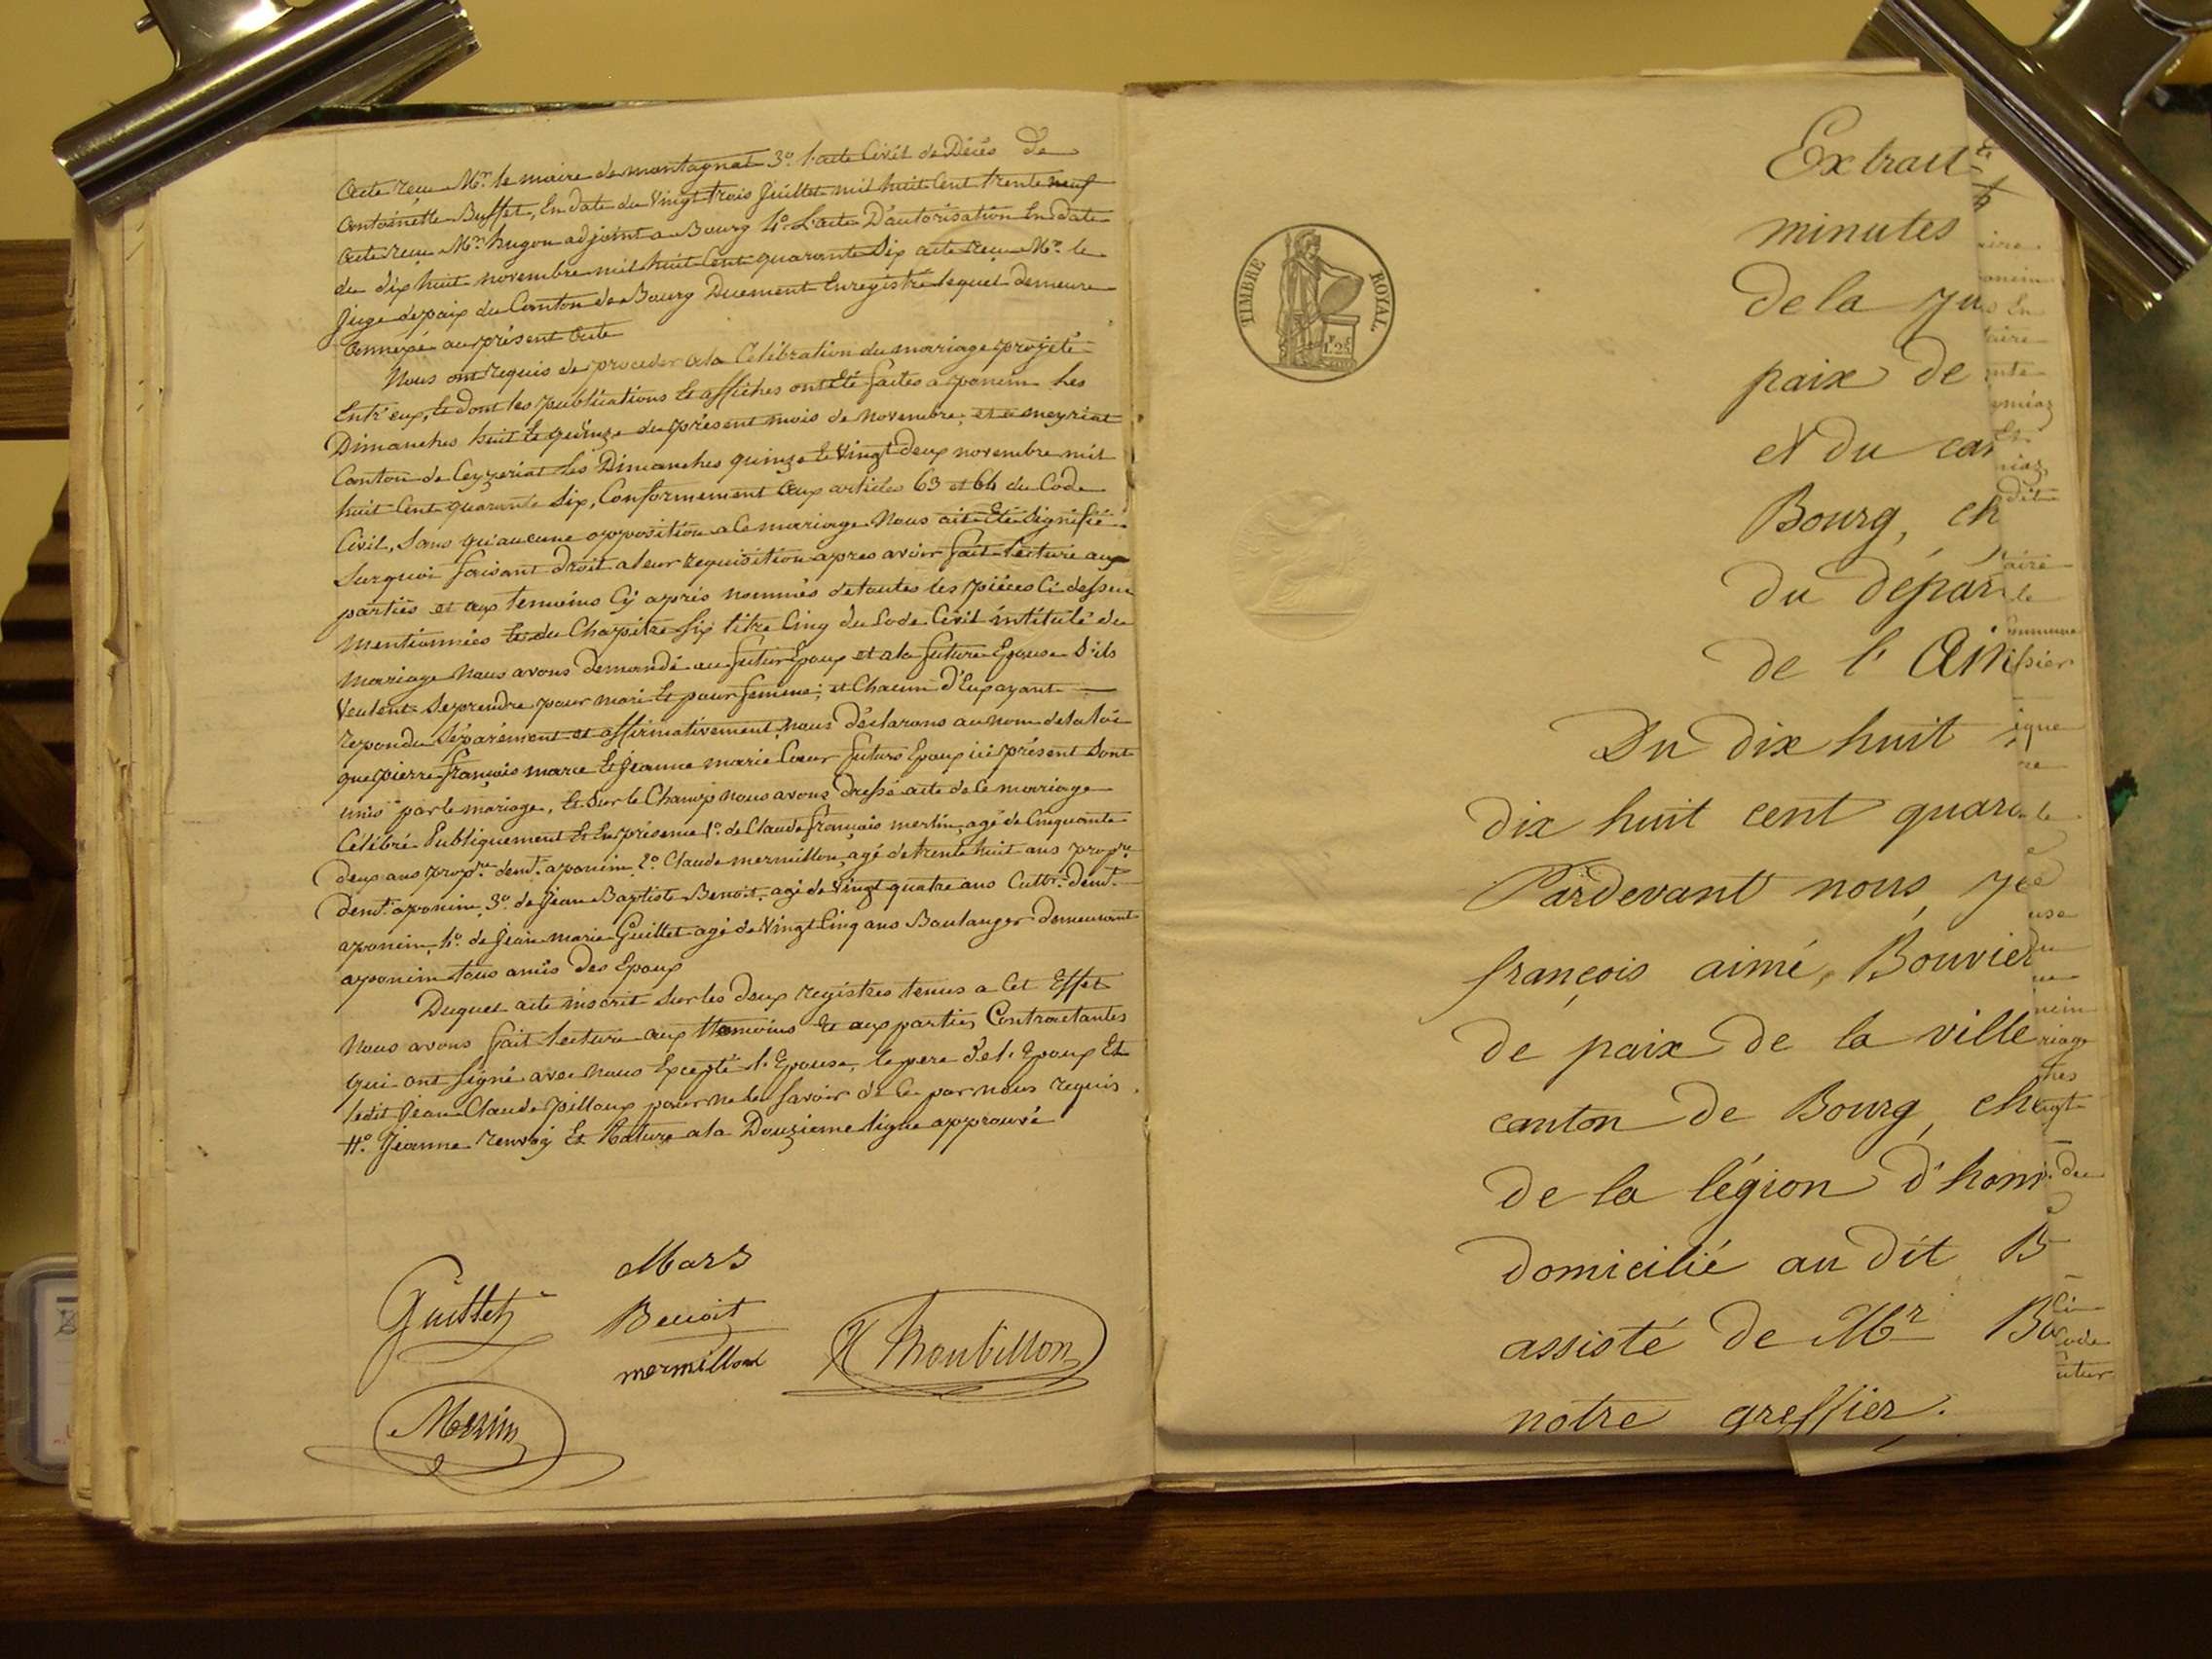 acte reçu Mr. le maire de montagnat 3º. l'acte Civil de Décès de
antoinette Buffet, En date du Vingt trois Juillet mil huit Cent trente neuf
acte reçu Mr. hugon adjoint a Bourg 4º. L'acte D'autorisation En date
du dix huit novembre mil huit Cent quarante Six acte reçu Mr. le
Juge de paix du Canton de Bourg Duement Enregistré lequel demeure
annexé au présent acte
Nous ont requis de proceder a la Célébration du mariage projeté
Entr'eux, & dont les publications & affiches ont Eté faites a poncin les
Dimanches huit & quinze du présent mois de novembre, et a meyriat
Canton de Ceyzeriat les Dimanches quinze & Vingt deux novembre mil
huit Cent quarante Six, Conformement aux articles 63 et 64 du Code
Civil, Sans qu'aucune opposition a Ce mariage Nous ait Eté Signifié
Surquoi faisant droit a leur requisition apres avoir fait lecture aux
parties et aux temoins Cy après nommés de toutes les pièces Ci dessus
mentionnées & du Chapitre Six titre Cinq du Code Civil intitulé du
mariage Nous avons demandé au futur Epoux et a la future Epouse S'ils
Veulent Se prendre pour mari & pour femme; et Chacun d'Eux ayant
repondu Séparément et affirmativement, nous déclarons au nom de la loi
que pierre françois marce & Jeanne marie Cœur futurs Epoux ici présent Sont
unis par le mariage, & Sur le Champ nous avons dressé acte de Ce mariage
Célébré Publiquement & En présence 1º. de Claude françois merlin, agé de Cinquante
deux ans propre. demt. a poncin, 2º Claude mermillon, agé de trente huit ans propre.
demt. a poncin, 3º. de Jean Baptiste Benoit, agé de Vingt quatre ans Cultr. demt.
a poncin, 4º. de Jean marie Guillet agé de Vingt Cinq ans Boulanger demeurant
a poncin tous amis des Epoux
Duquel acte inscrit Sur les deux registres tenus a Cet Effet
Nous avons fait lecture aux temoins & aux parties Contractantes
qui ont Signé avec Nous Excepté l'Epouse, le pere de l'Epoux Et
ledit Jean Claude pilloux pour ne le Savoir de Ce par nous requis.
Jeanne renvoi Et Rature a la Douzieme ligne approuvé
Mars
Guillet
Benoit
mermillon
Troubillon
Merlin
TIMBRE ROYAL
1F. 25
Extrait
minutes
de la Ju
paix de
et du can
Bourg, ch
du dépar
de l'Ain
Du dix huit
dix huit cent quara
Pardevant nous, Je
françois aimé, Bouvier
de paix de la ville
canton de Bourg, ch
de la légion d'hon
domicilié au dit B
assisté de Mr Bo
notre greffier.